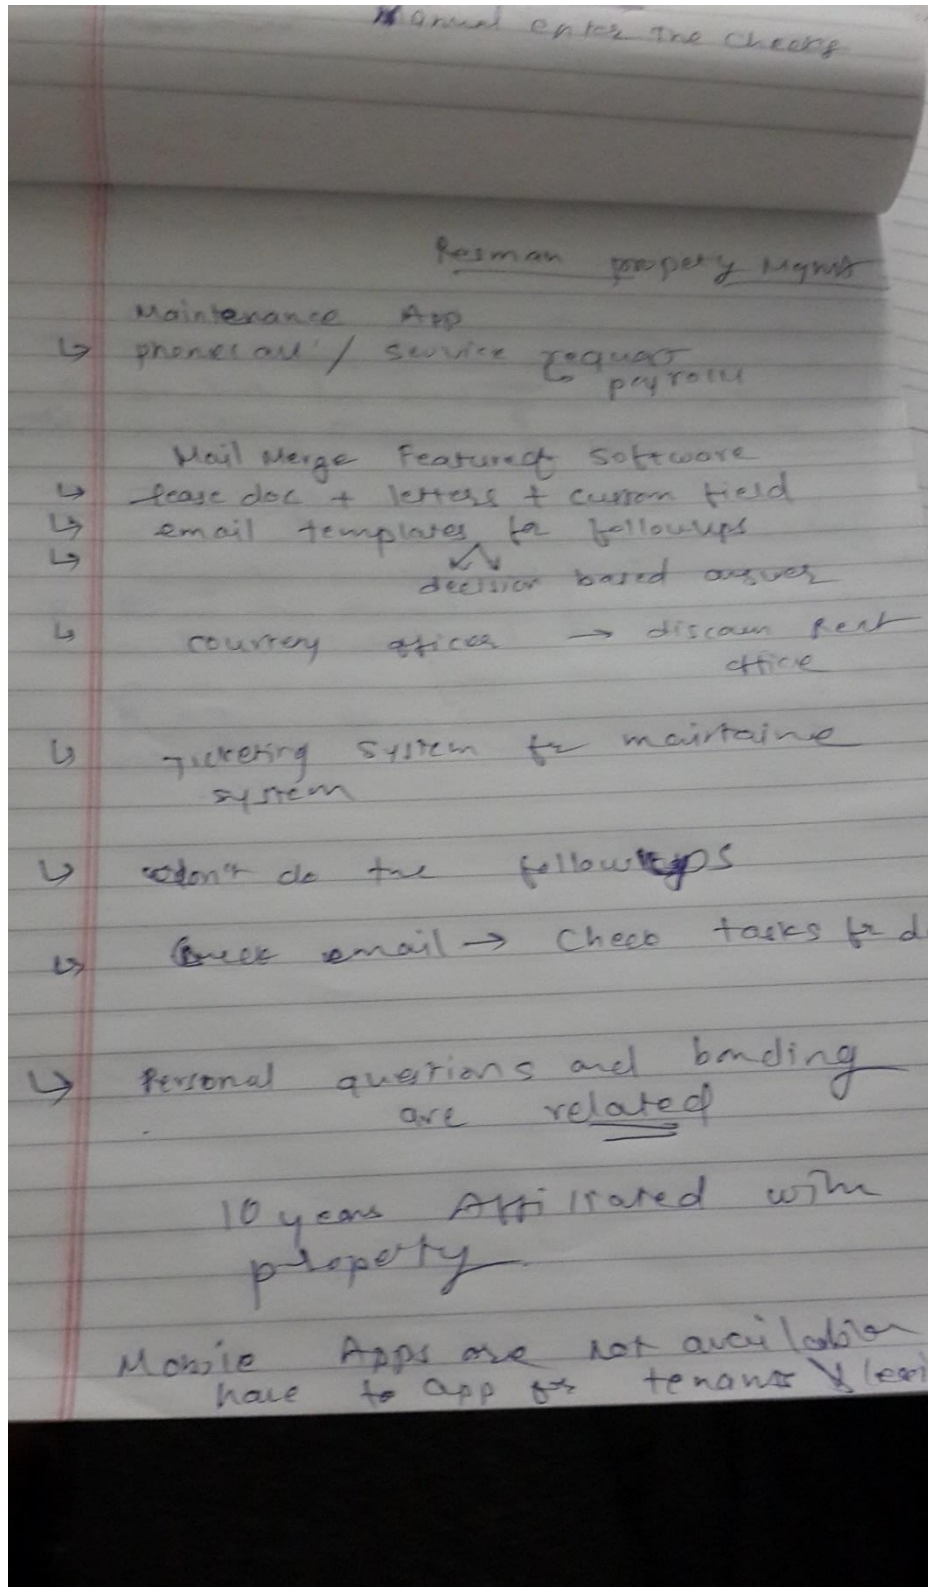 Manual enter the checks
Resman property Mgmt
Maintenance App
↳ phonecall / service request
↳ payroll
Mail Merge Feature of Software
↳ lease doc + letters + custom field
↳ email templates for followups
↳
decision based answer
↳ courtesy officer → discoun Rent
office
↳ Ticketing system for maintaine
system
↳ don't do the followups
↳ email → Check tasks for d
↳ Personal questions and bonding
are related
10 years Affiliated with
property
Mobile Apps are not available
have to app for tenants &